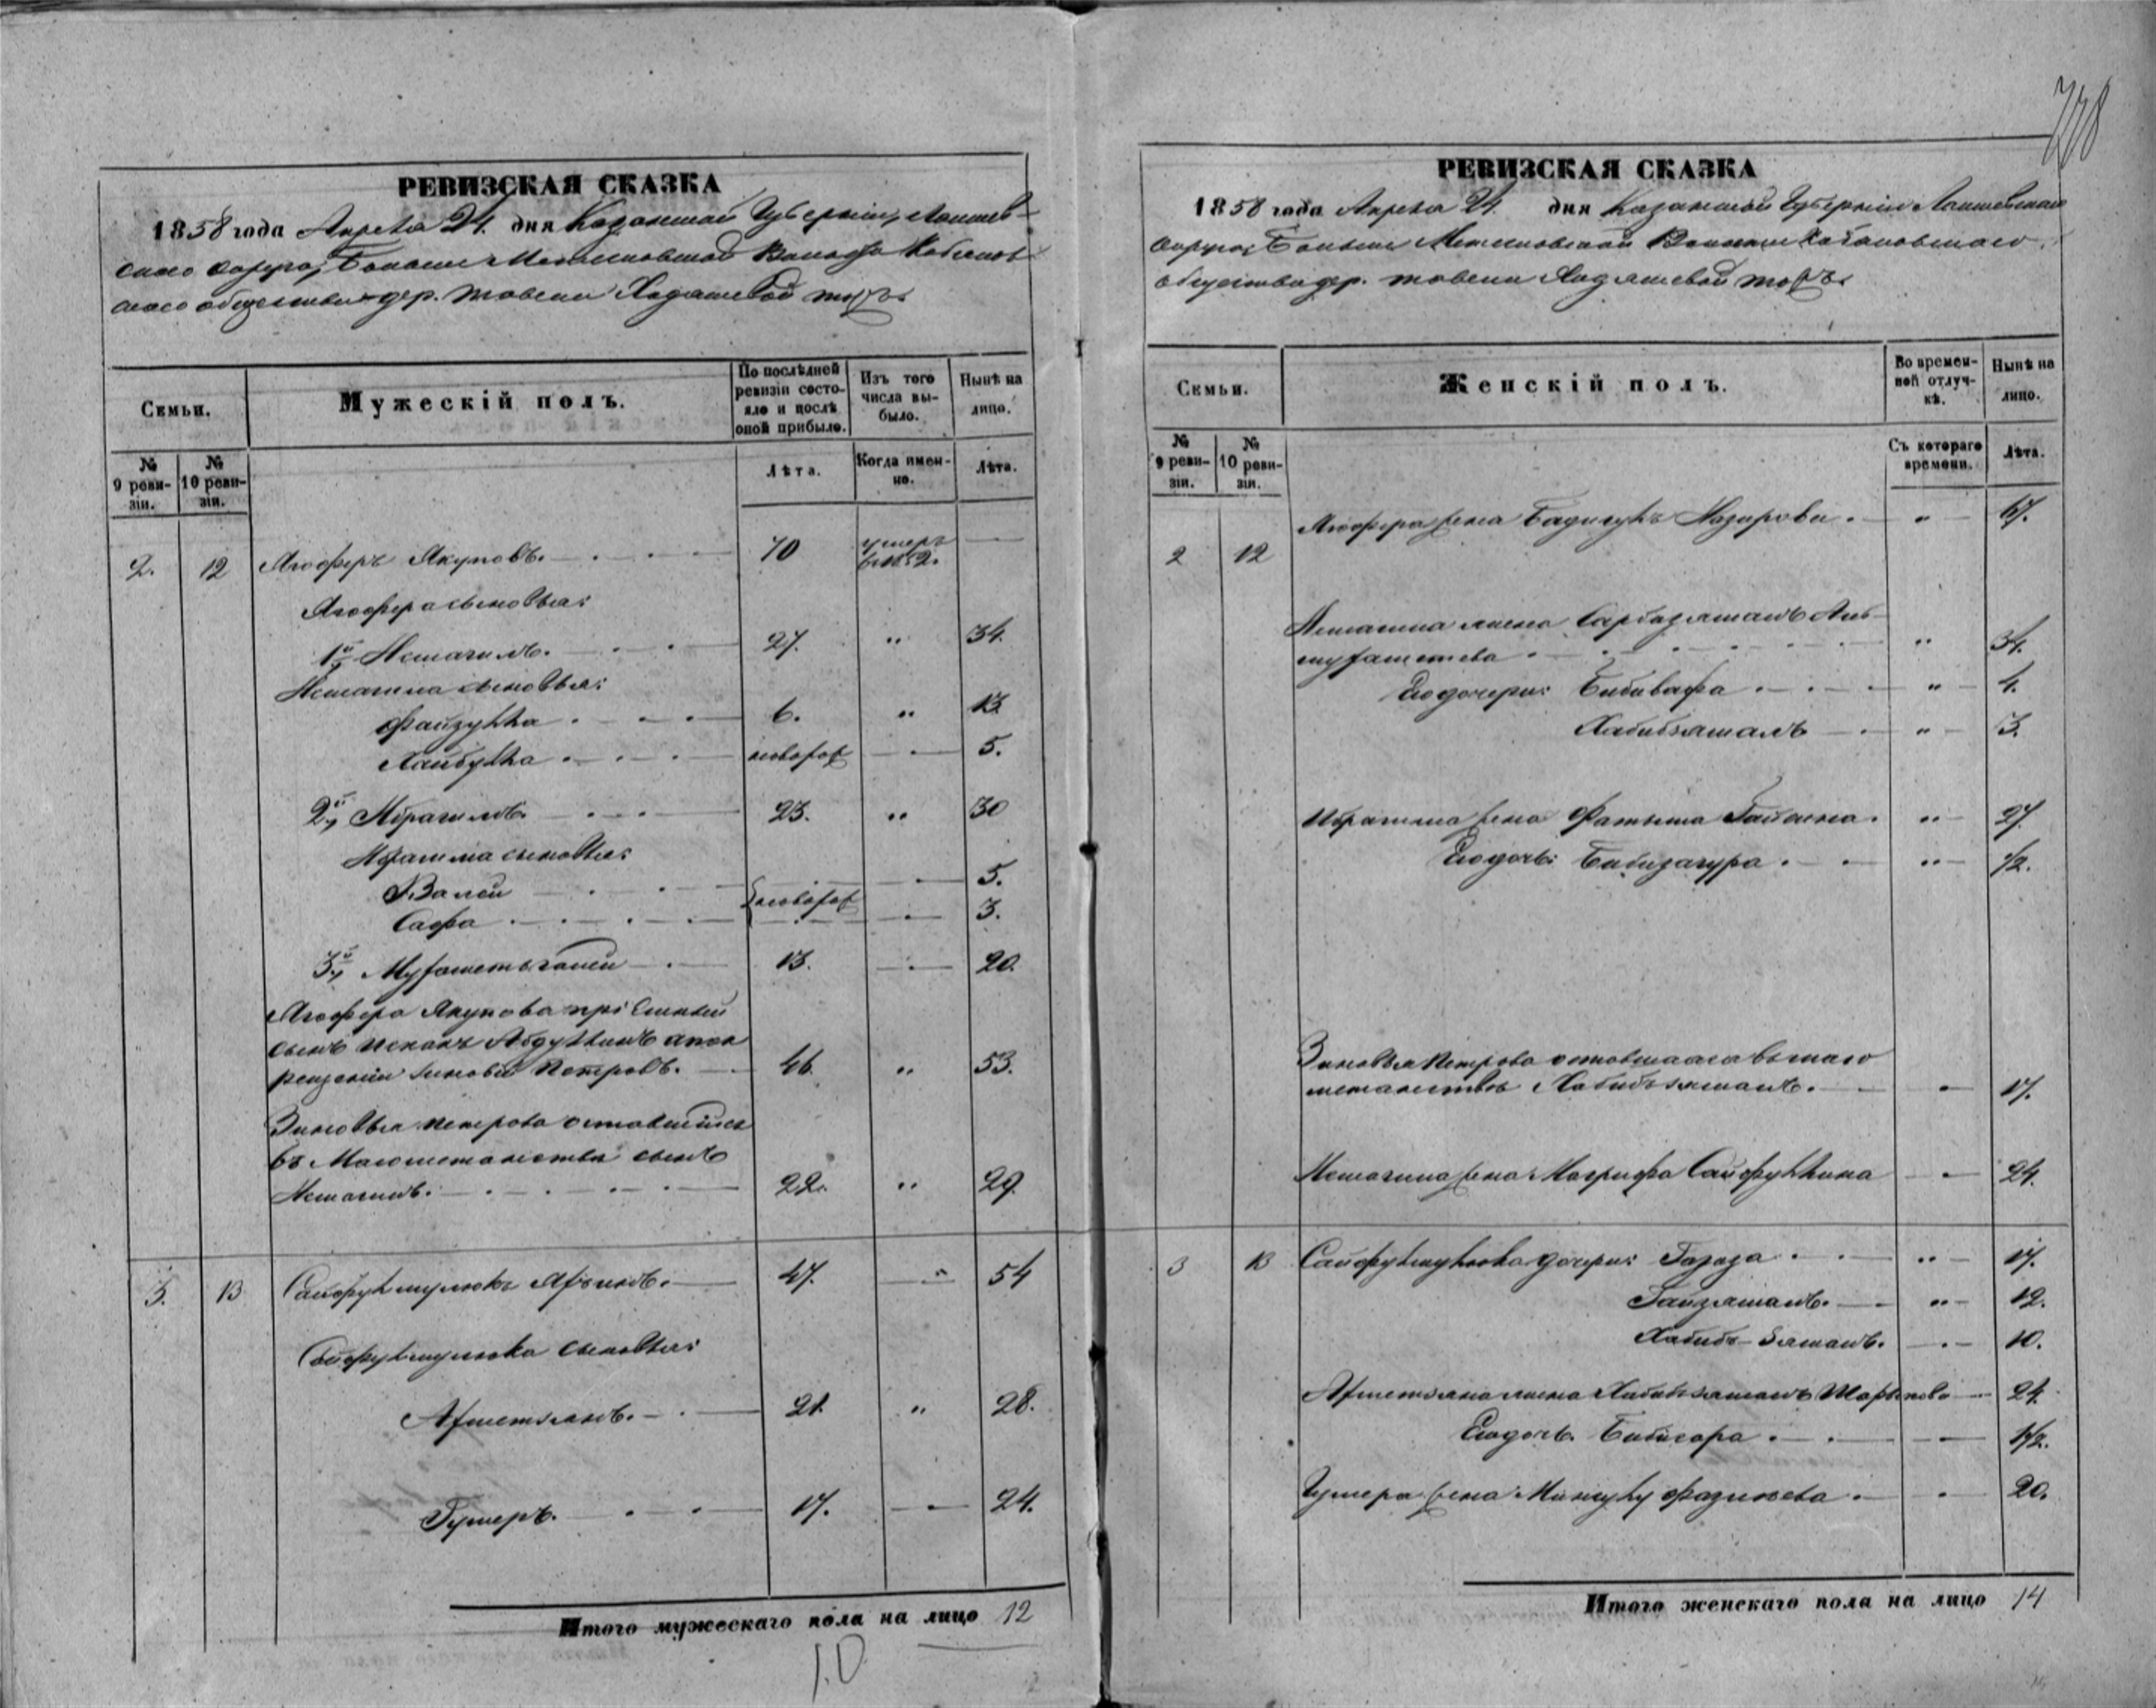 778
РЕВИЗСКАЯ СКАЗКА
1858 года Апреля 24. дня Казанской Губерніи, Лаишев-
скаго округа, Больше Метесковской Волости Кобяков
скаго общества дер. Ходяшевой
Семьи.
Мужескій полъ.
По послѣдней ревизіи состо-
яло и послѣ
оной прибыло.
Изъ того
числа вы-
было.
Нынѣ на
лицо.
№
9 реви-
зіи.
№
10 реви-
зіи.
Лѣта.
Когда имен-
но.
Лѣта.
2. 12 Ягофяръ Якуповъ. 70 умеръ в 1852.
Ягофера сыновья:
1й Исмагилъ. 27. " 34.
Исмагила сыновья:
Файзулла 6. " 13
Хайбулла новорож 5.
2й Ибрагимъ 23. " 30
Ибрагима сыновья:
Валей 5.
новорож
Сафа 3.
3й Мухаметьгалей 13. 20.
Ягофера Якупова пріемный
сынъ Абдулкинъ
Зиновій Петровъ. 46. " 53.
Зиновья Петрова оставшійся
въ Магометанстве сынъ
Исмагилъ. 22. " 29.
3. 13 Сайфулмулюкъ 47. " 54
Сайфулмулюка сыновья:
Ахметзянъ. 21. " 28.
Гумеръ. 17. 24.
Итого мужескаго пола на лицо 12
РЕВИЗСКАЯ СКАЗКА
1858 года Апреля 24. дня Казанской Губерніи Лаишевскаго
округа, Больше Метесковской Волости Кобяковскаго
общества дер. Ходяшевой
Семьи.
Женскій полъ.
Во времен-
ной отлуч-
кѣ.
Нынѣ на
лицо.
№
9 реви-
зіи.
№
10 реви-
зіи.
Съ котораго
времени.
Лѣта.
Ягофера жена Назирова. " 67.
2 12
Исмагила жена
" 34.
Его дочери: Бибивафа " 4.
Хабибзямалъ " 3.
Ибрагима жена Фатыма " 27.
Его дочь: Бибизагура " 1/2.
Зиновья Петрова оставшаяся в маго
метанстве Хабибъзямалъ. 17.
Исмагила жена Магрифа Сайфуллина 24.
3 13 Сайфулмулюка дочери: " 17.
Гайзямалъ. " 12.
Хабибъ-зямалъ. 10.
Ахметзяна жена Хабибзямалъ 24.
Его дочь. Бибисара 1/2.
Гумера жена 20.
Итого женскаго пола на лицо 14